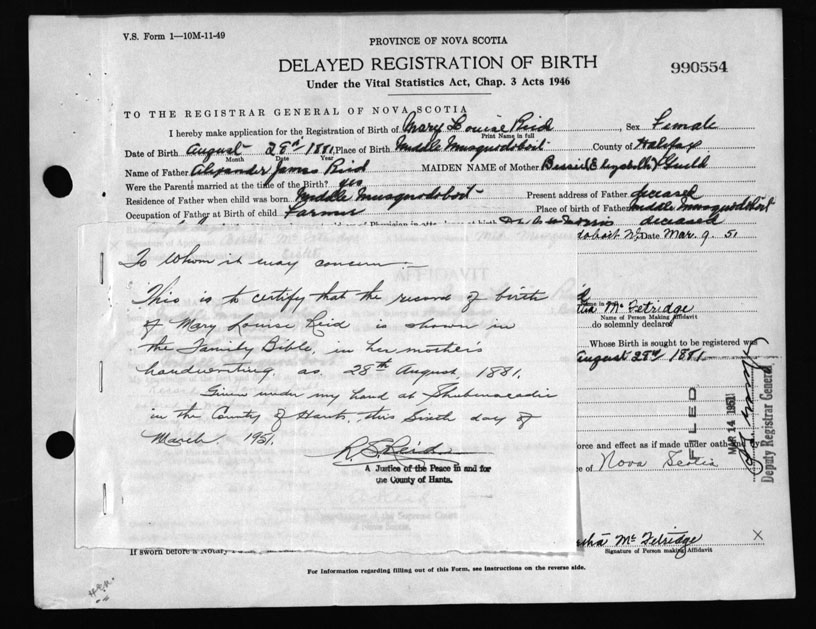 V.S. Form 1—10M-11-49
PROVINCE OF NOVA SCOTIA
DELAYED REGISTRATION OF BIRTH
990554
Under the Vital Statistics Act, Chap. 3 Acts 1946
TO THE REGISTRAR GENERAL OF NOVA SCOTIA
I hereby make application for the Registration of Birth of Mary Louise Reid, Sex Female
Print Name in full
Date of Birth August 28th 1881 Place of Birth Middle Musquodoboit County of Halifax
Month Date Year
Name of Father Alexander James Reid MAIDEN NAME of Mother Bessie Elizabeth Guild
Were the Parents married at the time of the Birth? yes
Residence of Father when child was born Middle Musquodoboit Present address of Father deceased
Occupation of Father at Birth of child Farmer Place of birth of Father Middle Musquodoboit
deceased
doboit Date Mar. 9 51
To Whom it may concern
This is to certify that the record of birth
of Mary Louise Reid is shown in
the Family Bible, in her mother's
handwriting as 28th August 1881.
Given under my hand at Shubenacadie
in the County of Hants, this Sixth day of
March 1951.
R. S. Reid
A Justice of the Peace in and for
the County of Hants.
Mc Fetridge
Name of Person Making Affidavit
do solemnly declare
Whose Birth is sought to be registered was
August 28th 1881
FILED
MAR 14 1951
Deputy Registrar General
force and effect as if made under oath
ce of Nova Scotia
tha Mc Fetridge X
Signature of Person making Affidavit
If sworn before a Notary
For Information regarding filling out of this Form, see instructions on the reverse side.